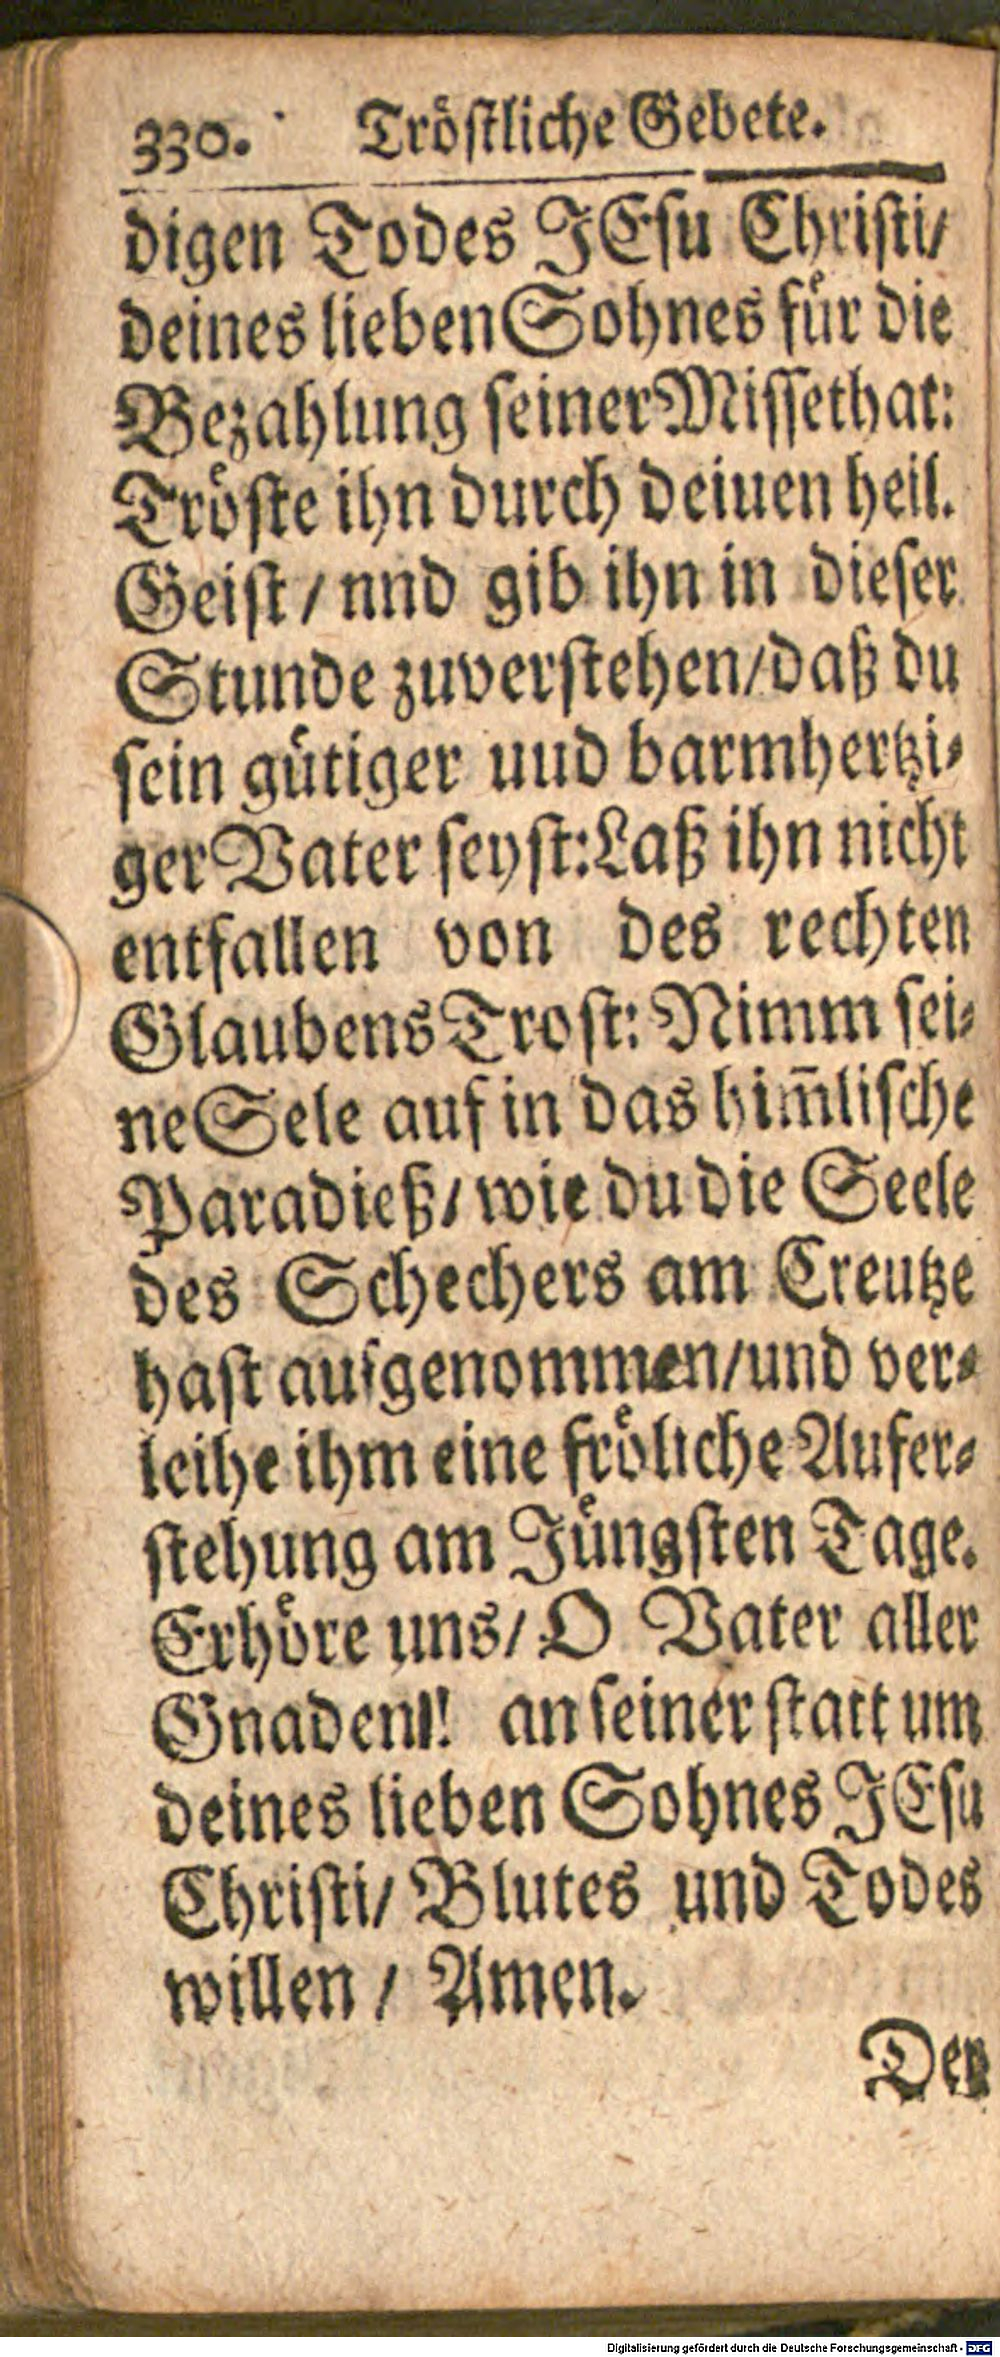 330. Tröſtliche Gebete.
digen Todes JEſu Chriſti/
deines lieben Sohnes für die
Bezahlung ſeiner Miſſethat:
Tröſte ihn durch deiuen heil.
Geiſt / nnd gib ihn in dieſer
Stunde zuverſtehen/daß du
ſein gütiger uud barmhertzi⸗
ger Vater ſeyſt: Laß ihn nicht
entfallen von des rechten
Glaubens Troſt: Nimm ſei⸗
ne Sele auf in das him̃liſche
Paradieß/ wie du die Seele
des Schechers am Creutze
haſt aufgenommen/und ver⸗
leihe ihm eine fröliche Aufer⸗
ſtehung am Jüngſten Tage.
Erhöre uns/ O Vater aller
Gnaden!! an ſeiner ſtatt um
deines lieben Sohnes JEſu
Chriſti/ Blutes und Todes
willen / Amen.
Der
Digitalisierung gefördert durch die Deutsche Forschungsgemeinschaft - DFG